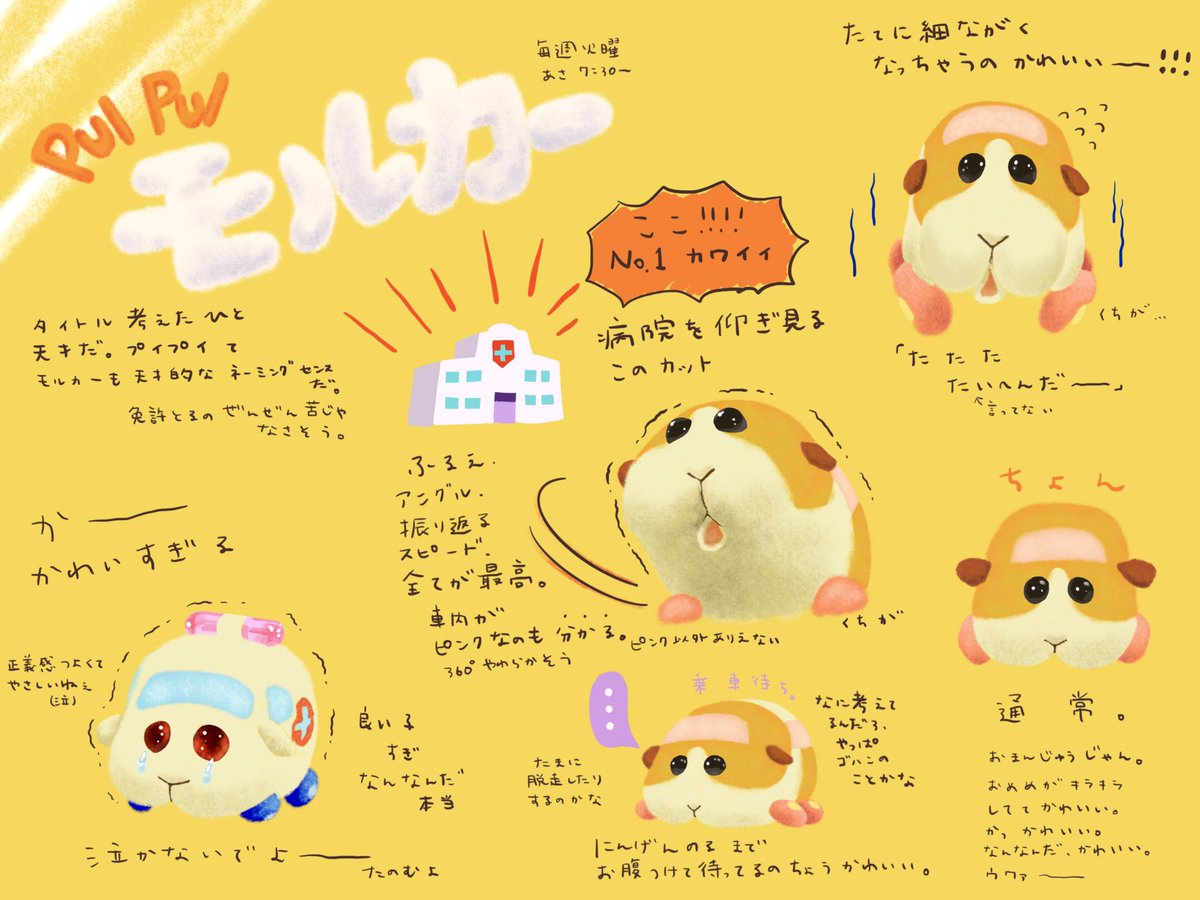 PUI PUI
モルカー
毎週火曜
あさ 7:30〜
たてに細ながく
なっちゃうの かわいい ー!!!
ここ!!!!
No.1 カワイイ
病院を仰ぎ見る
このカット
くちが…
「たたた
たいへんだー」
^言ってない
タイトル考えたひと
天才だ。プイプイて
モルカーも天才的なネーミングセンス
だ。
免許とるのぜんぜん苦じゃ
なさそう。
ふるえ、
アングル、
振り返る
スピード、
全てが最高。
車内が
ピンクなのも分かる。
ピンク以外ありえない
360°やわらかそう
くちが
かー
かわいすぎる
正義感つよくて
やさしいねぇ
(泣)
良い
すぎ
なんなんだ
本当
泣かないでよー
たのむよ
乗車待ち。
なに考えて
るんだろ、
やっぱ
ゴハンの
ことかな
たまに
脱走したり
するのかな
にんげんのるまで
お腹つけて待ってるのちょうかわいい。
ちょん
通常。
おまんじゅうじゃん。
おめめがキラキラ
しててかわいい。
かっかわいい。
なんなんだ、かわいい。
ウワァー